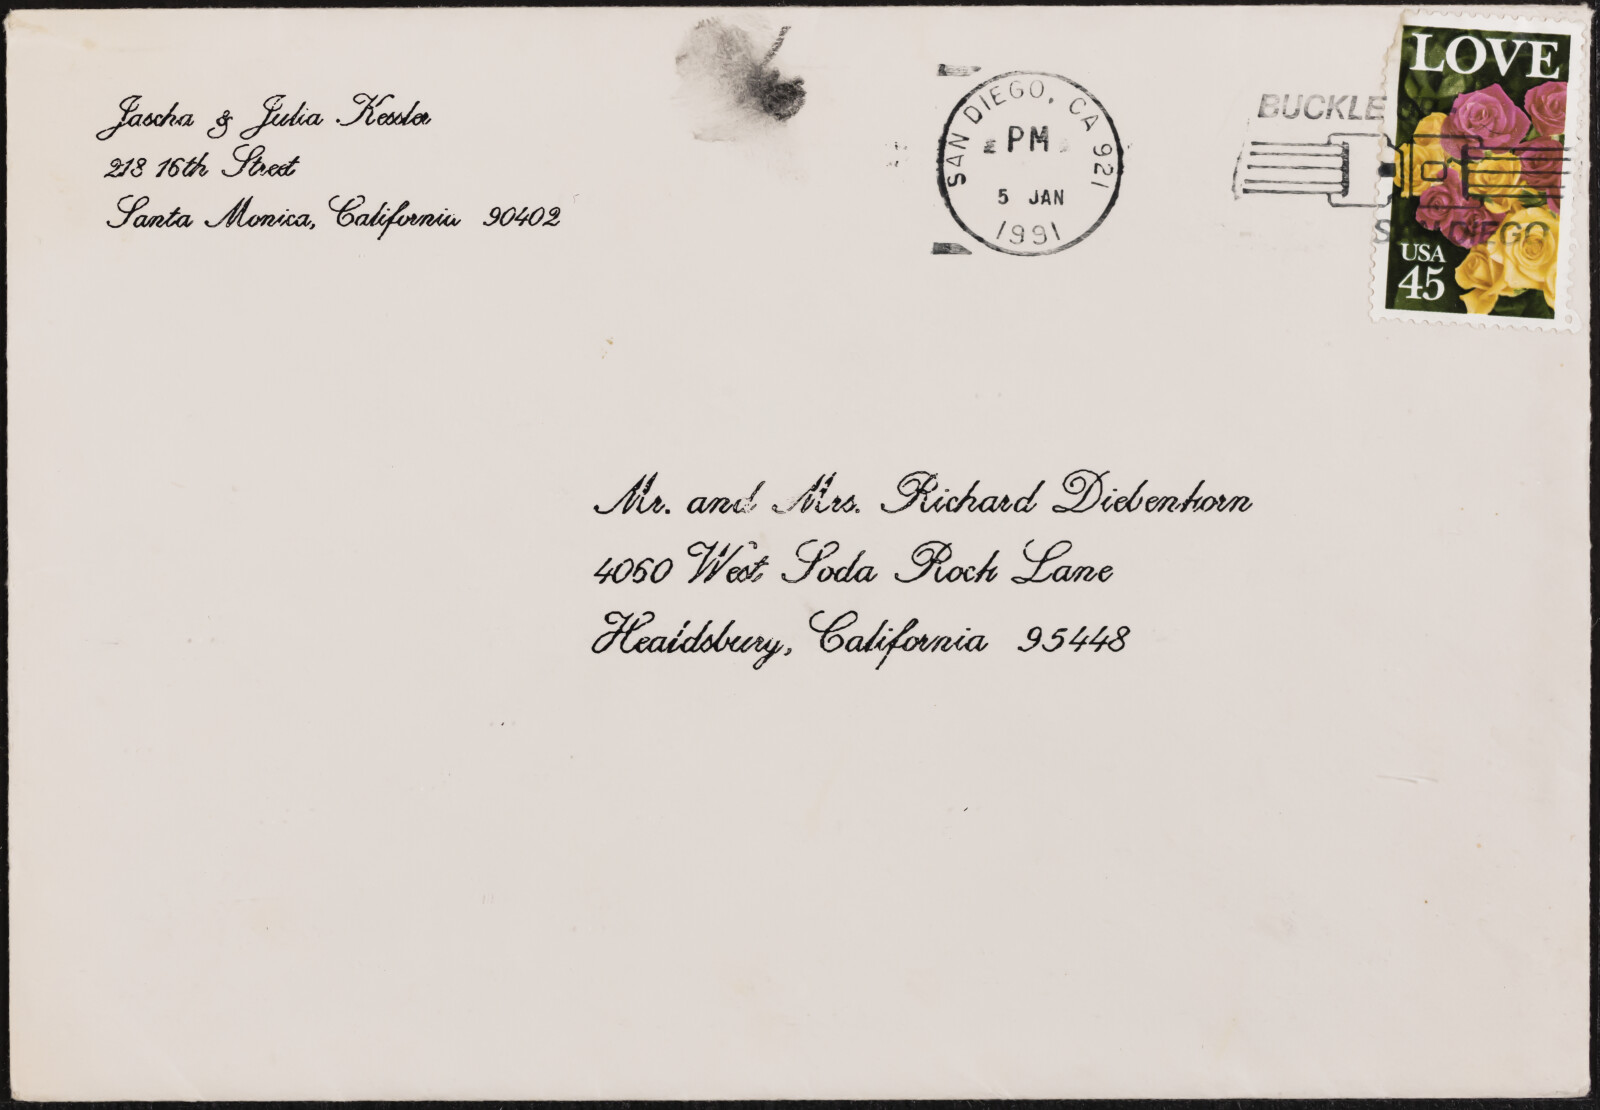 Jascha & Julia Kessler
218 16th Street
Santa Monica, California 90402
SAN DIEGO, CA 921
PM
5 JAN
1991
BUCKLE UP
SAN DIEGO
LOVE
USA
45
Mr. and Mrs. Richard Diebenkorn
4060 West Soda Rock Lane
Healdsburg, California 95448